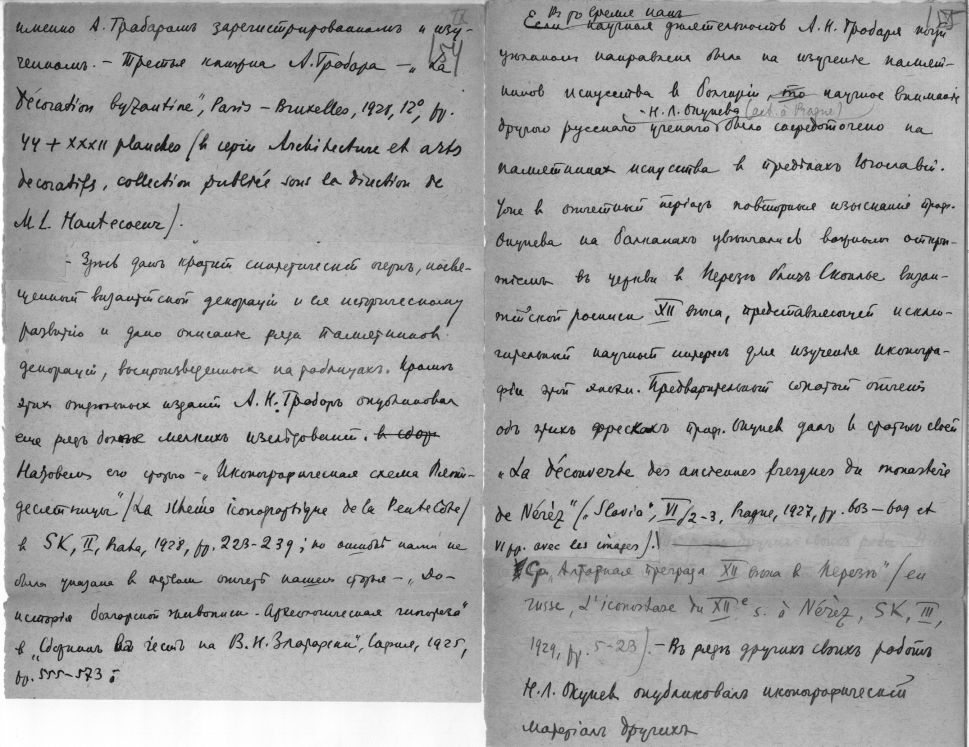 154
именно А. Грабаромъ зарегистрированномъ и изу-
ченномъ. – Третья книжка А. Грабара – „La
Décoration byzantine", Paris – Bruxelles, 1928, 12°, pp.
44 + XXXII planches (в серiи Architecture et arts
décoratifs, collection publiée sous la direction de
M. L. Hautecoeur).
– Здѣсь данъ краткiй синтетическiй очеркъ, посвя-
щенный византiйской декорацiи и ее историческому
развитiю и дано описанiе ряда памятниковъ
декорацiй, воспроизведенныхъ на таблицахъ. Кромѣ
этихъ отдѣльныхъ изданiй А. Н. Грабаръ опубликовалъ
еще рядъ болѣе мелкихъ изслѣдованiй. в сбор
Назовемъ его статью – „Иконографическая схема Пяти-
десятницы" /La schéma iconographique de la Pentecôte/
в SK, II, Praha, 1928, pp. 223–239; но ошибкѣ нами не
была указана в первомъ отчетѣ нашемъ статья – „До-
исторiя болгарской живописи.
в „Сборникъ въ честь на В. Н. Златарски", София, 1925,
pp. 555–573.
155
Въ то время какъ
Если научная дѣятельность А. Н. Грабаря
направлена была на изученiе памят-
никовъ искусства в Болгарiи, то научное вниманiе
– Н. Л. Окунева (act. à Prague)
другого русскаго ученаго было сосредоточено на
памятникахъ искусства в предѣлахъ Югославiи.
Уже в отчетный перiодъ повторныя изысканiя проф.
Окунева на Балканахъ увѣнчались важнымъ откры-
тiемъ въ церкви в Нерезѣ близъ Скоплье визан-
тiйской росписи XII вѣка, представляющей исклю-
чительный научный интересъ для изученiя иконогра-
фiи этой эпохи. Предварительный сжатый отчетъ
объ этихъ фрескахъ проф. Окуневъ далъ в статьѣ своей
„La découverte des anciennes fresques du monastère
de Nérèz" („Slavia", VI/2–3, Prague, 1927, pp. 603–609 et
VI pp. avec les images).
Ср. „Алтарная преграда XII вѣка в Нерезѣ" /en
russe, L'iconostase du XIIe s. à Nérèz, SK, III,
1929, pp. 5–23). – Въ рядѣ другихъ своихъ работъ
Н. Л. Окуневъ опубликовалъ иконографическiй
матерiалъ другихъ